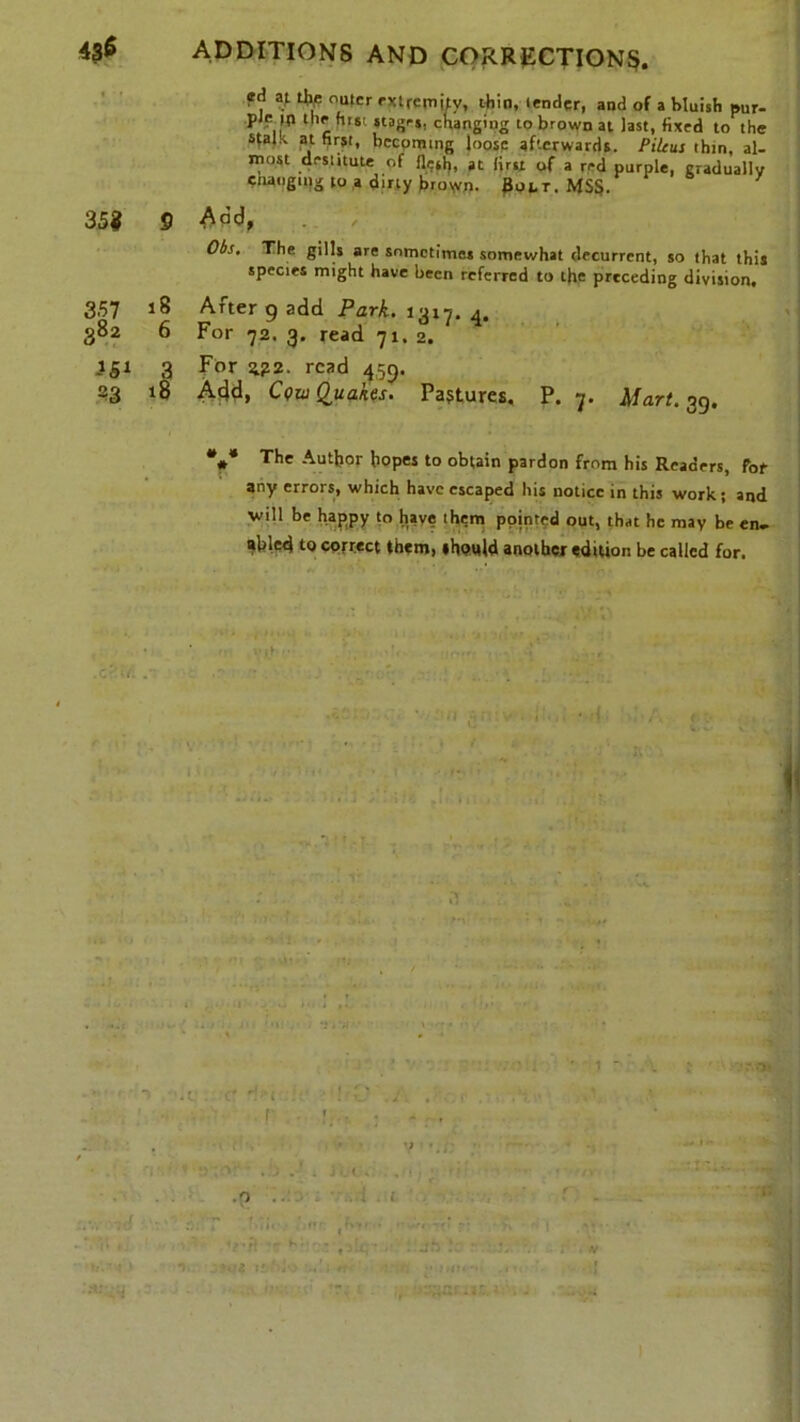 436 ADDITIONS AND CORRECTIONS.
ed at the outer extremity, thin, tender, and of a bluish pur-
ple in the first stages, changing to brown at last, fixed to the
stalk at first, becoming loose afterwards. Pileus thin, al-
most destitute of flesh, at first of a red purple, gradually
changing to a dirty brown. BOLT. MSS.
358 9 Add,
Obs. The gills are sometimes somewhat decurrent, so that this
species might have been referred to the preceding division.
357 18 After 9 add Park. 1317. 4.
382 6 For 72. 3. read 71. 2.
151 3 For 272. read 459.
23 18 Add, Cow Quakes. Pastures. P. 7. Mart. 39.
*⁎* The Author hopes to obtain pardon from his Readers, for
any errors, which have escaped his notice in this work; and
will be happy to have them pointed out, that he may be en-
abled to correct them, should another edition be called for.